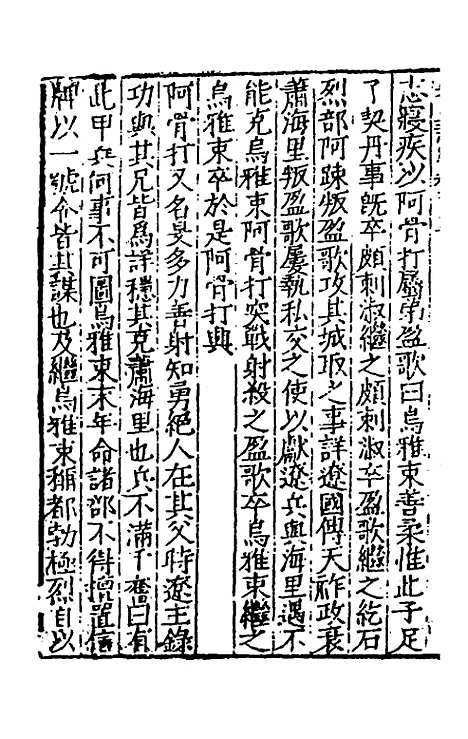 志寢疾以阿骨打屬弟盈歌曰烏雅束善柔惟此子足
了契丹事旣卒頗刺淑繼之頗刺淑卒盈歌繼之紇石
烈部阿踈叛盈歌攻其城取之事詳遼國傳天祚政衰
蕭海里叛盈歌屢執私交之使以獻遼兵與海里遇不
能克烏雅束阿骨打突戰射殺之盈歌卒烏雅束繼之
烏雅束卒於是阿骨打興
阿骨打又名旻多力善射知勇絕人在其父時遼主錄
功與其兄皆爲詳穩其克蕭海里也兵不滿千奮曰有
此甲兵何事不可圖烏雅束末年命諸部不得擅置信
牌以一號令皆其謀也及繼烏雅束稱都勃極烈自以